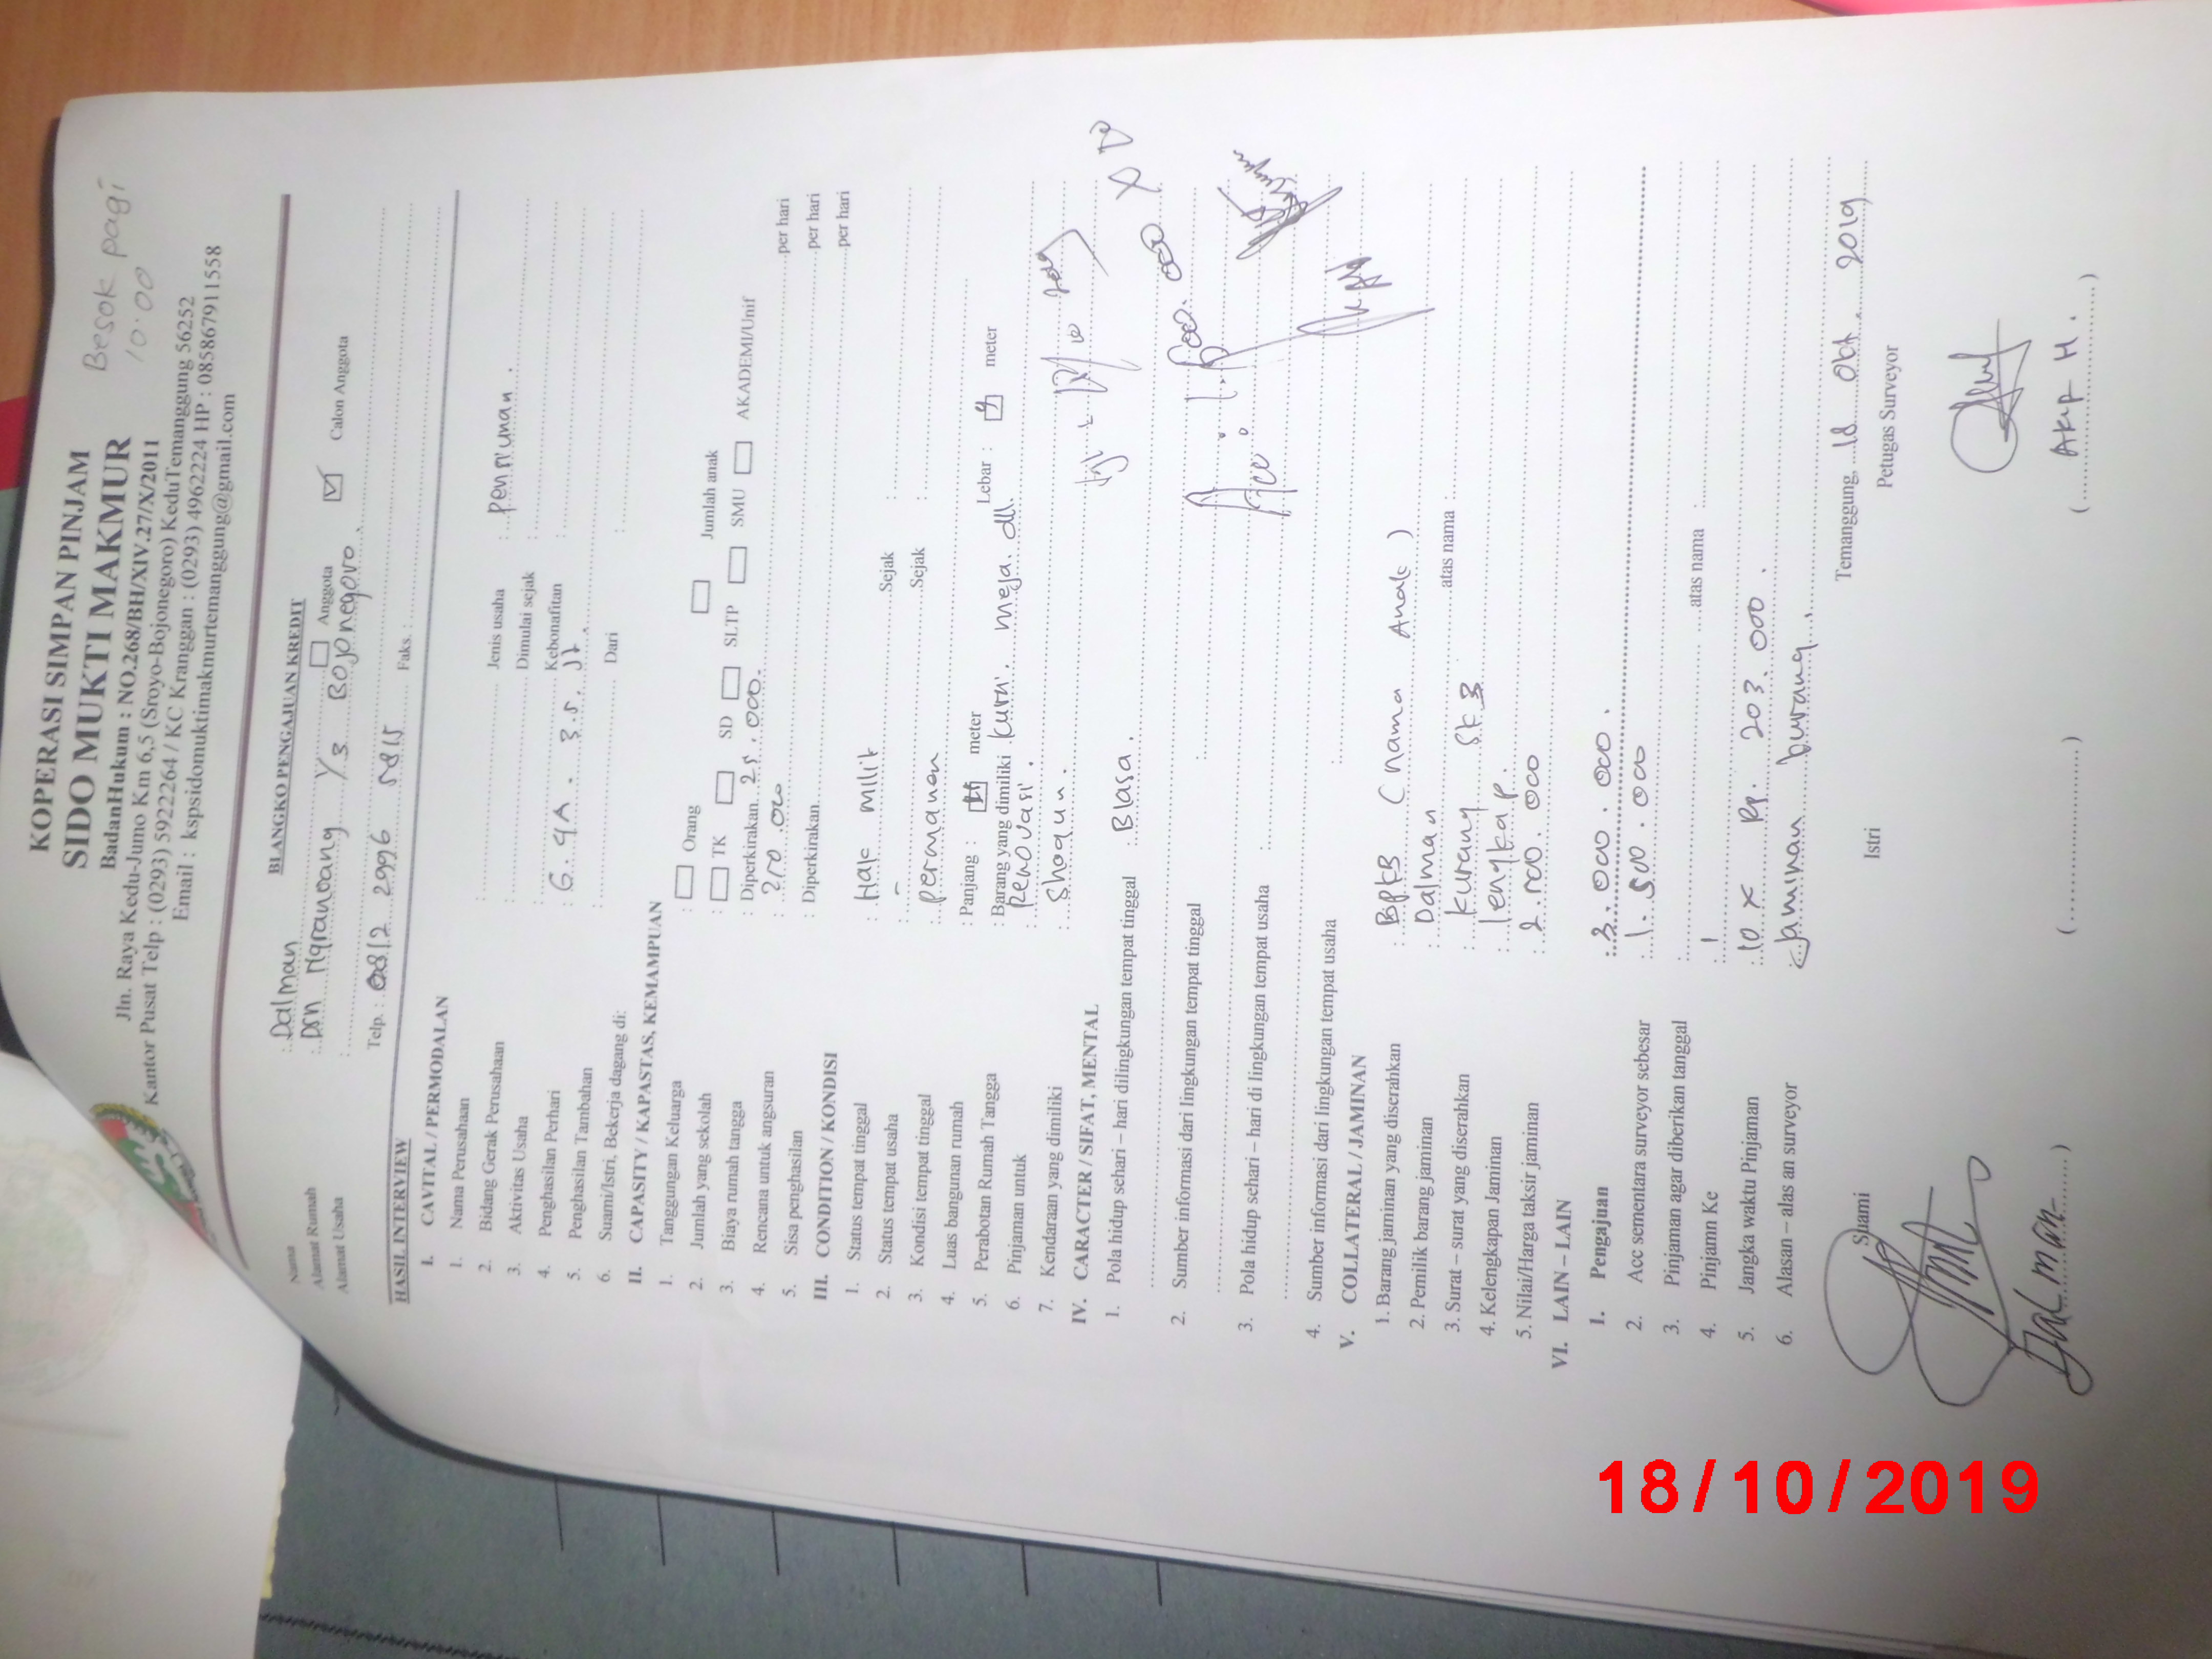 KOPERASI SIMPAN PINJAM
SIDO MUKTI MAKMUR
BadanHukum : NO.268/BH/XIV.27/X/2011
Jln. Raya Kedu-Jumo Km 6,5 (Sroyo-Bojonegoro) KeduTemanggung 56252
Kantor Pusat Telp : (0293) 5922264 / KC Kranggan : (0293) 4962224 HP : 085867911558
Email : kspsidomuktimakmurtemanggung@gmail.com
Besok pagi
10.00
BLANGKO PENGAJUAN KREDIT
Nama : Dalman Anggota Calon Anggota
Alamat Rumah : Dsn Ngranwang 1/3 Bojonegoro
Alamat Usaha :
Telp. : 0812 2996 5815 Faks. :
HASIL INTERVIEW
I. CAVITAL / PERMODALAN
1. Nama Perusahaan : Jenis usaha : Pensiunan.
2. Bidang Gerak Perusahaan : Dimulai sejak :
3. Aktivitas Usaha : Kebonafitan :
4. Penghasilan Perhari : G. 4A. 3.5. Jt.
5. Penghasilan Tambahan : Dari :
6. Suami/Istri, Bekerja dagang di:
II. CAPASITY / KAPASTAS, KEMAMPUAN
1. Tanggungan Keluarga : Orang Jumlah anak
2. Jumlah yang sekolah : TK SD SLTP SMU AKADEMI/Unif
3. Biaya rumah tangga : Diperkirakan 25.000. per hari
4. Rencana untuk angsuran : 210.000 per hari
5. Sisa penghasilan : Diperkirakan per hari
III. CONDITION / KONDISI
1. Status tempat tinggal : Hak milik Sejak :
2. Status tempat usaha : - Sejak :
3. Kondisi tempat tinggal : permanen
4. Luas bangunan rumah : Panjang : meter Lebar : 9 meter
5. Perabotan Rumah Tangga : Barang yang dimiliki kursi. meja. dll.
6. Pinjaman untuk : Renovasi.
7. Kendaraan yang dimiliki : Shogun.
IV. CARACTER / SIFAT, MENTAL
1. Pola hidup sehari – hari dilingkungan tempat tinggal : Biasa.
2. Sumber informasi dari lingkungan tempat tinggal :
3. Pola hidup sehari – hari di lingkungan tempat usaha :
4. Sumber informasi dari lingkungan tempat usaha :
Acc :
V. COLLATERAL / JAMINAN
1. Barang jaminan yang diserahkan : BPKB (nama Anak)
2. Pemilik barang jaminan : Dalman
3. Surat – surat yang diserahkan : kurang SKB atas nama :
4. Kelengkapan Jaminan : lengkap.
5. Nilai/Harga taksir jaminan : 2.500.000
VI. LAIN – LAIN
1. Pengajuan : 3.000.000.
2. Acc sementara surveyor sebesar : 1.500.000
3. Pinjaman agar diberikan tanggal : atas nama :
4. Pinjamn Ke : 1
5. Jangka waktu Pinjaman : 10 x Rp. 203.000.
6. Alasan – alas an surveyor : Jaminan kurang.
Temanggung, 18 Okt. 2019
Suami Istri Petugas Surveyor
(Dalman) (..........) (AKIP H.)
18/10/2019